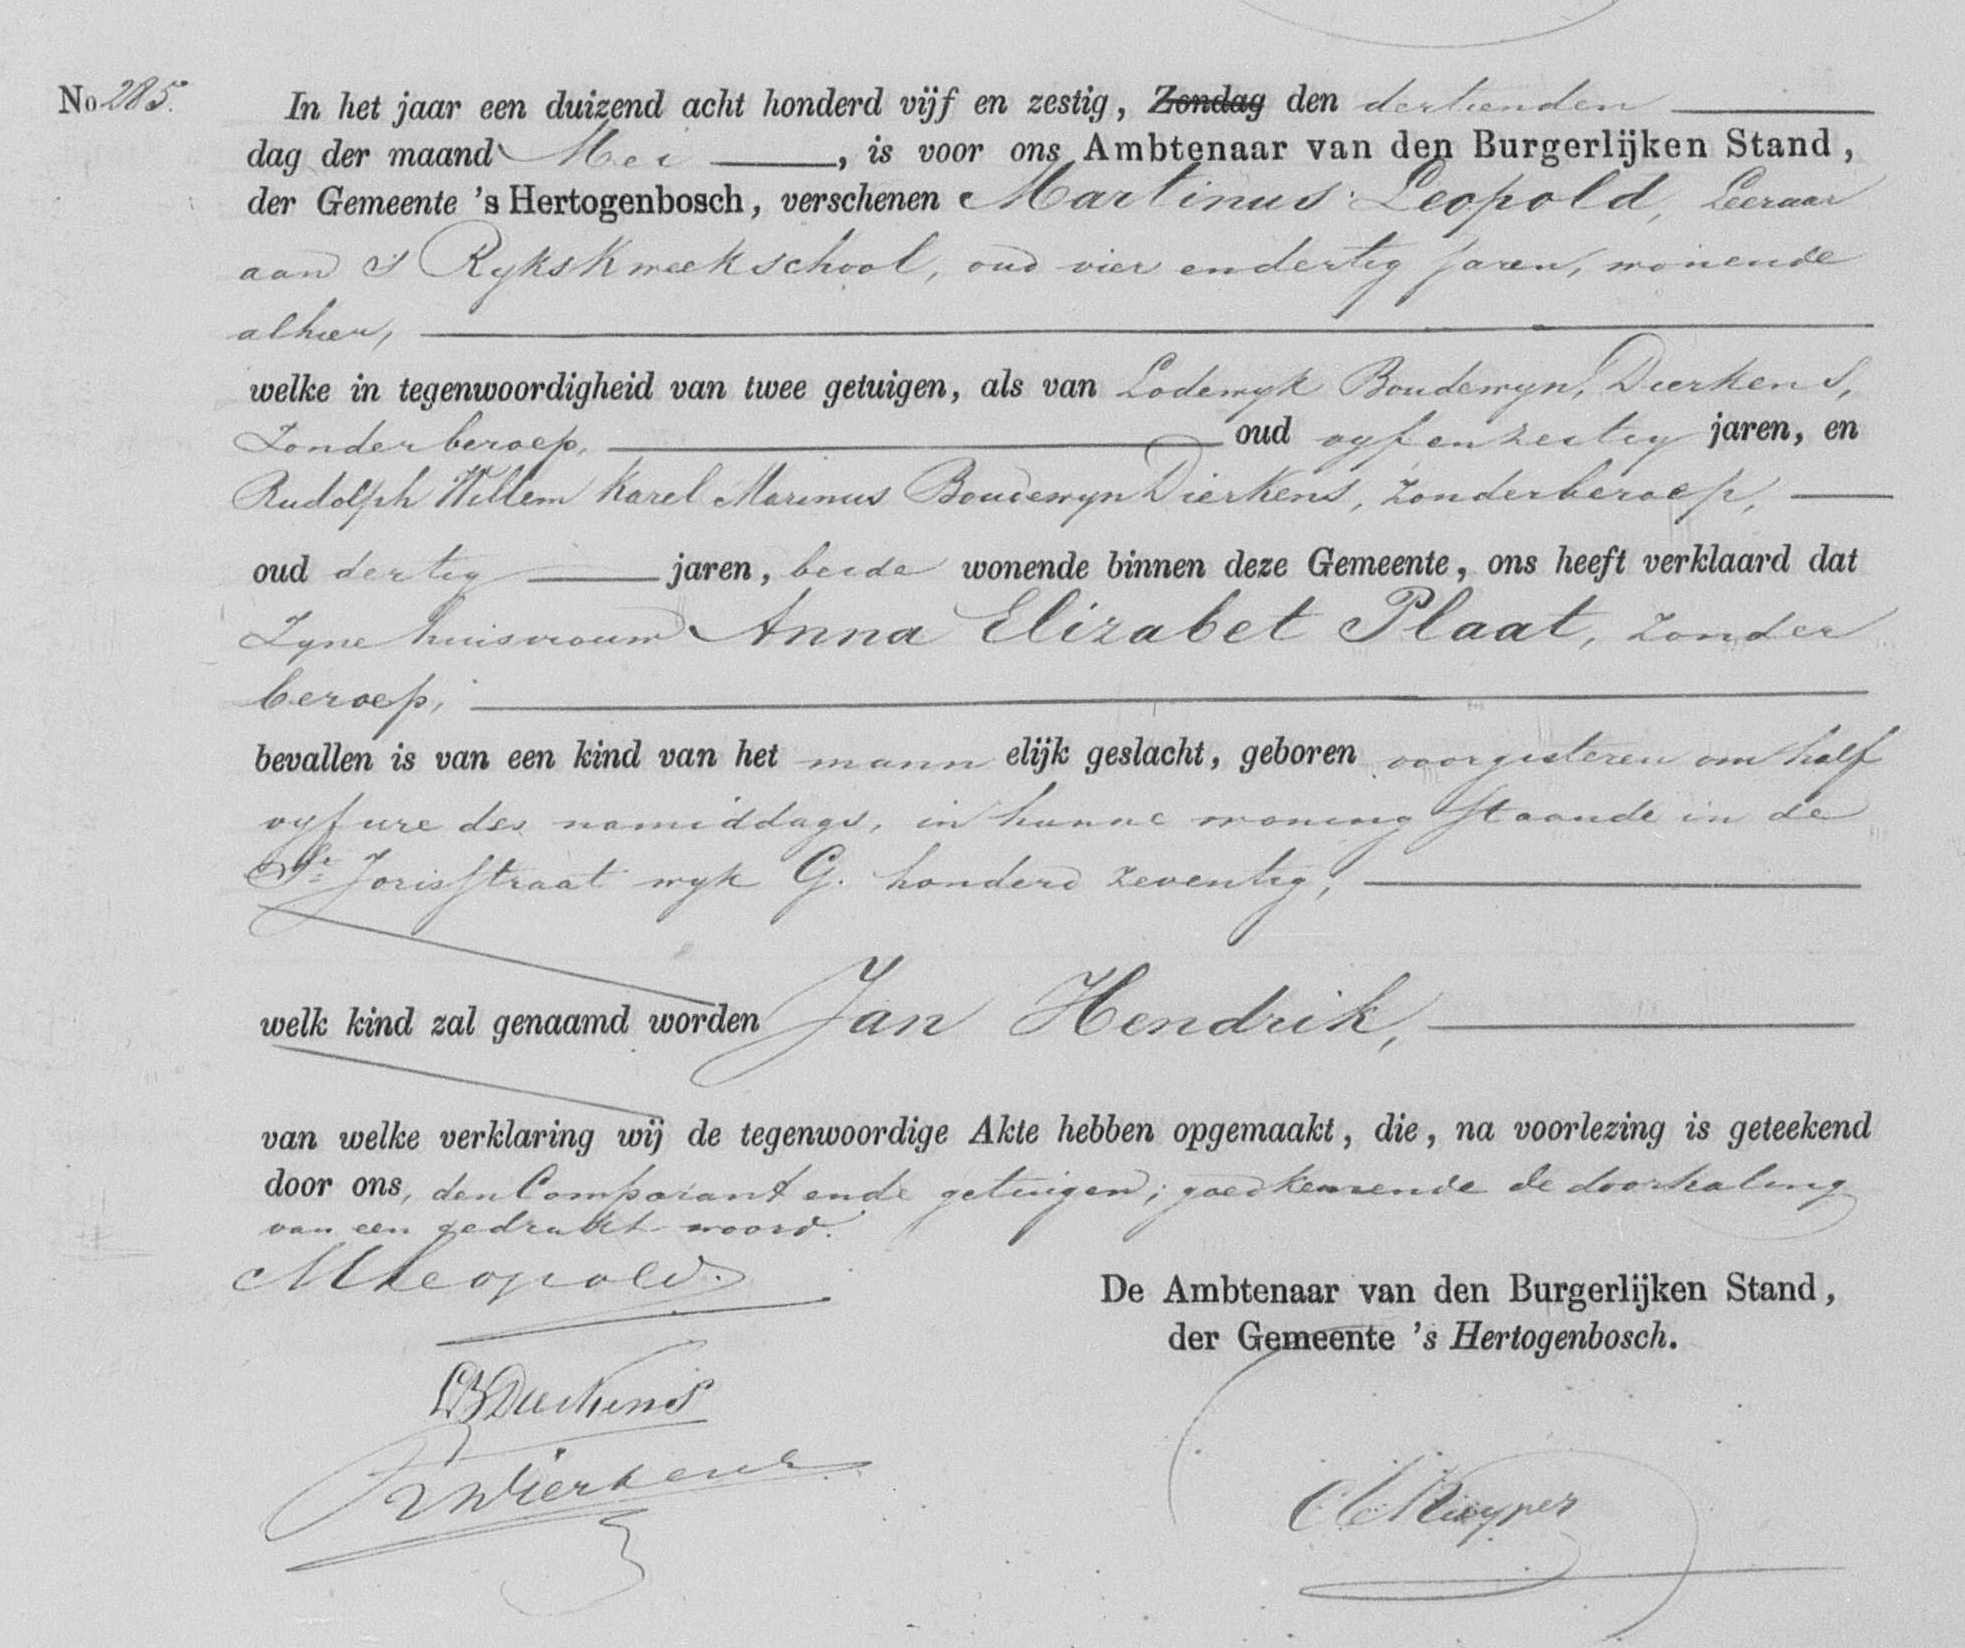 No 285.
In het jaar een duizend acht honderd vijf en zestig, Zondag den dertienden
dag der maand Mei, is voor ons Ambtenaar van den Burgerlijken Stand,
der Gemeente 's Hertogenbosch, verschenen Martinus Leopold, Leeraar
aan 's Rykskweekschool, oud vier en dertig jaren, wonende
alhier,
welke in tegenwoordigheid van twee getuigen, als van Lodewyk Boudewyn Dierkens,
Zonder beroep, oud vyf en zestig jaren, en
Rudolph Willem Karel Marinus Boudewyn Dierkens, zonder beroep,
oud dertig jaren, beide wonende binnen deze Gemeente, ons heeft verklaard dat
Zyne huisvrouw Anna Elizabet Plaat, zonder
beroep,
bevallen is van een kind van het mann elijk geslacht, geboren voorgisteren om half
vyf ure des namiddags, in hunne woning staande in de
St. Jorisstraat wyk G. honderd zeventig,
welk kind zal genaamd worden Jan Hendrik,
van welke verklaring wij de tegenwoordige Akte hebben opgemaakt, die, na voorlezing is geteekend
door ons, den Comparant en de getuigen; goedkeurende de doorhaling
van een gedrukt woord.
MLeopold.
De Ambtenaar van den Burgerlijken Stand,
der Gemeente 's Hertogenbosch.
LBDierkens
Dierkens